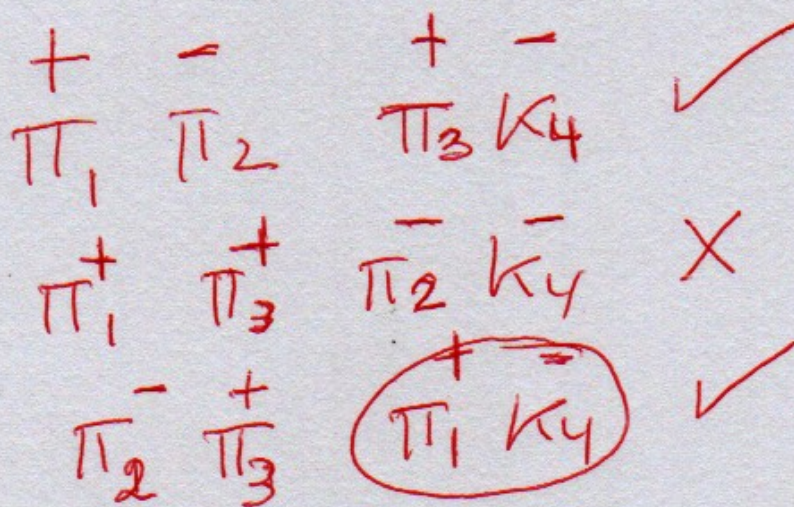 π₁⁺ π₂⁻ π₃⁺ K₄⁻ ✓
π₁⁺ π₃⁺ π₂⁻ K₄⁻ X
π₂⁻ π₃⁺ π₁⁺ K₄⁻ ✓